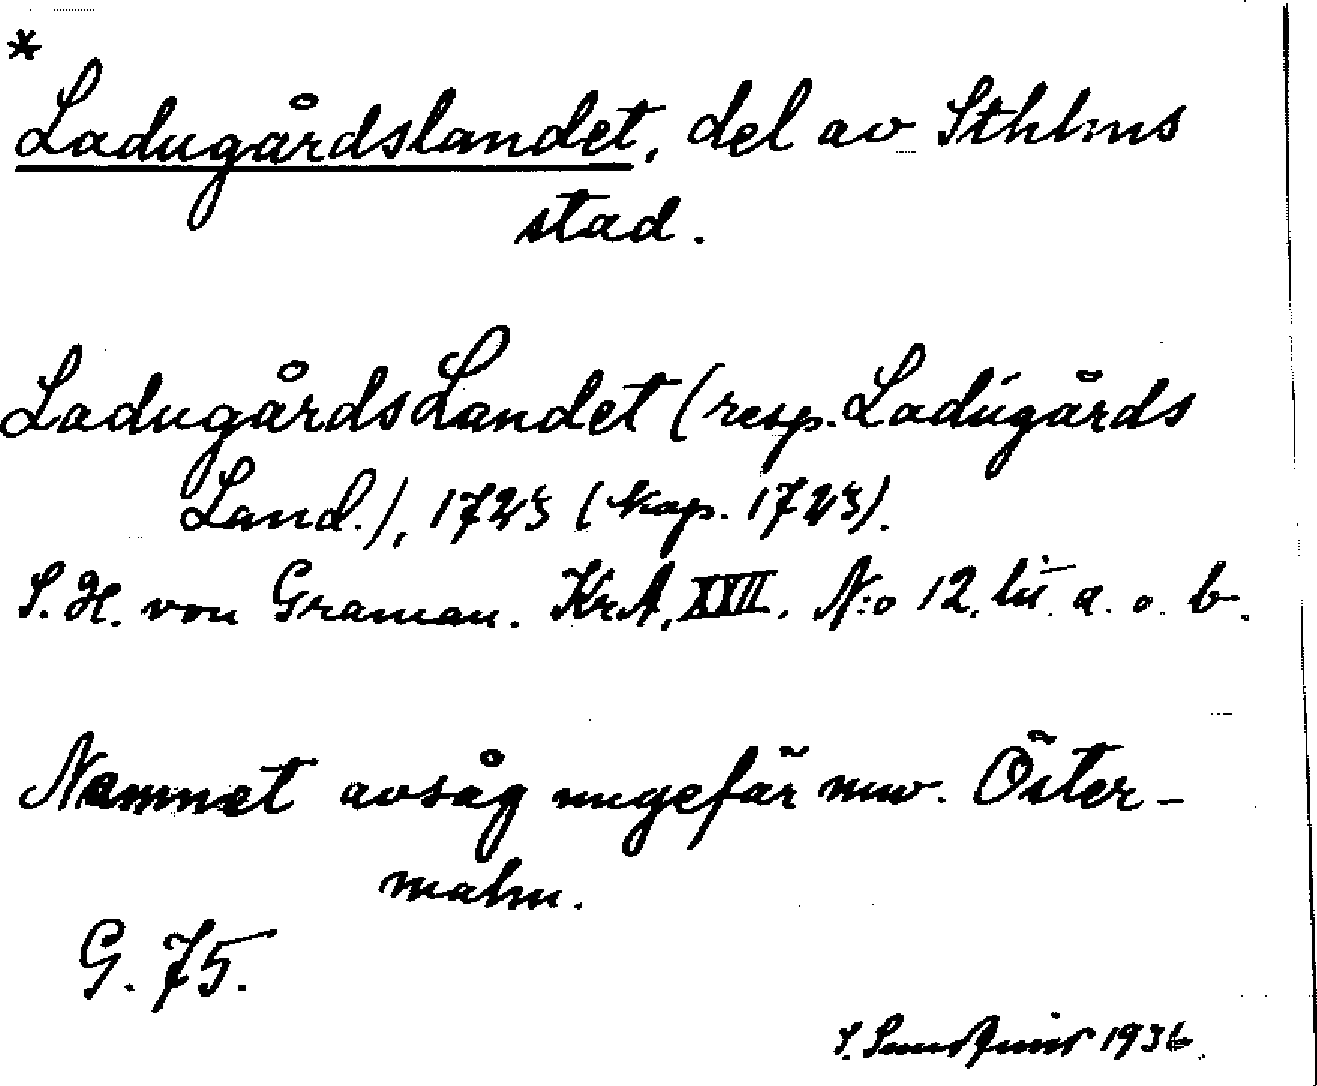 *
Ladugårdslandet, del av Sthlms
stad.
LadugårdsLandet (resp. Ladúgårds
Land.), 1723 (kop. 1723).
S. H. von Graman. KrA, XVII. N:o 12. lit. a. o. b.
Namnet avsåg ungefär nuv. Öster-
malm.
G. 75.
S. 1936.